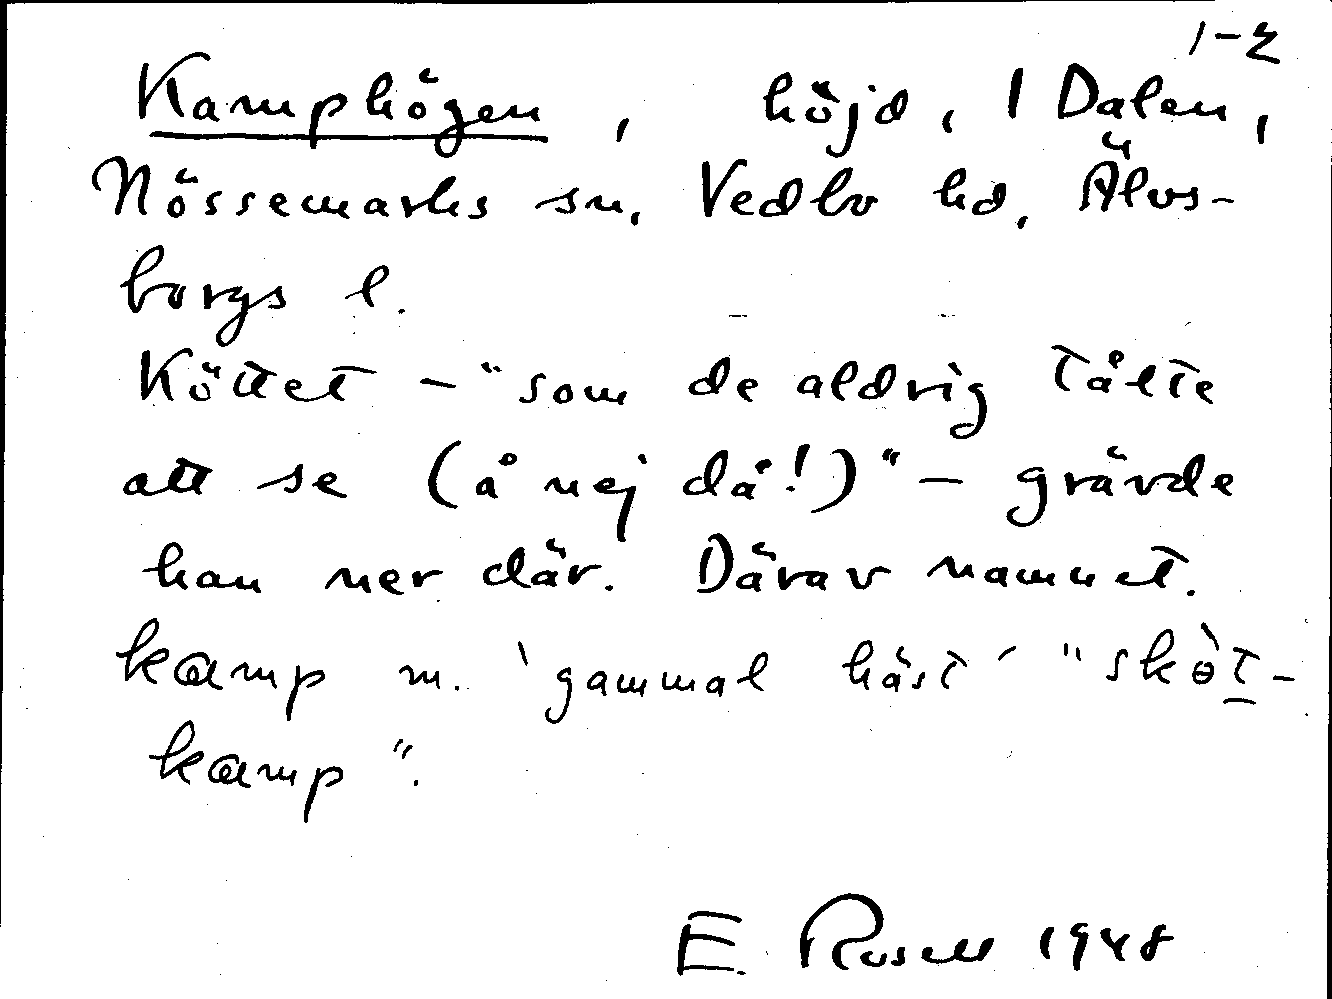 1-2
Kamphögen, höjd, 1 Dalen,
Nössemarks sn, Vedbo hd, Älvs-
borgs l.
Köttet - "som de aldrig tålte
att se (å nej då!)" - grävde
han ner där. Därav namnet.
kamp m. 'gammal häst' "skòt-
kamp".
E. Rosell 1948